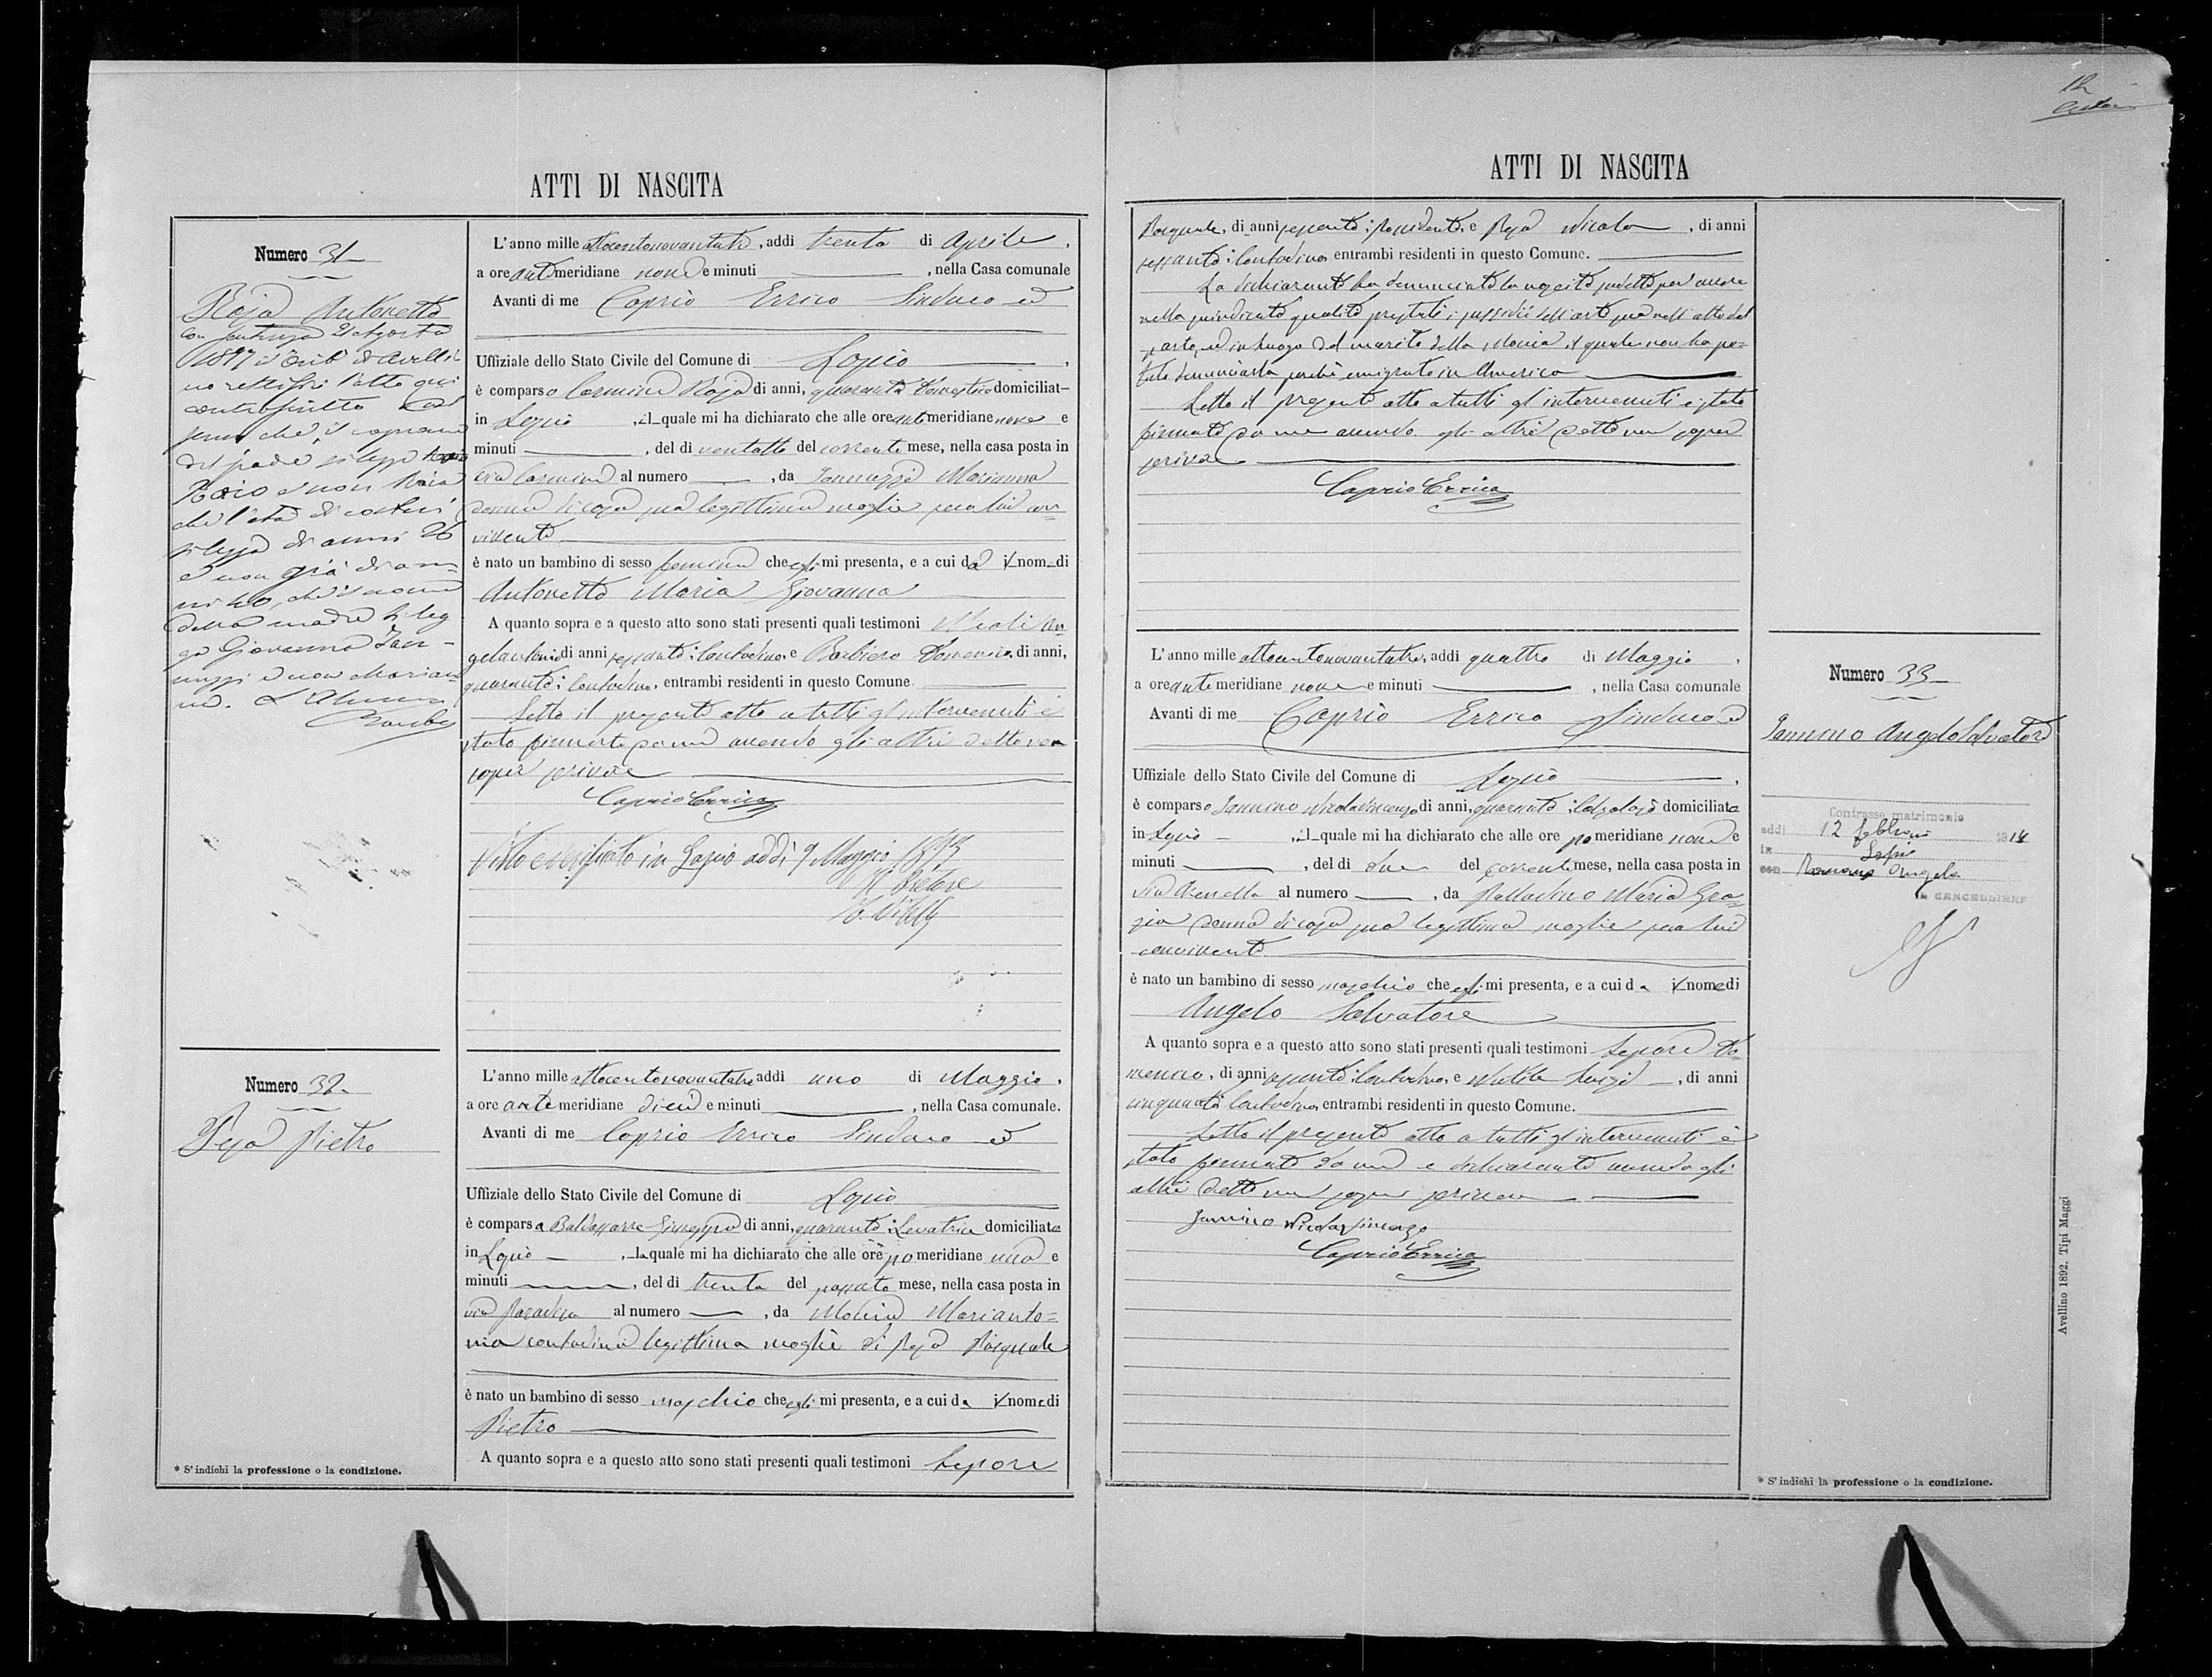 12
ATTI DI NASCITA
Numero 31
Roja Antonetta
con sentenza 21 Agosto
1897 il Trib. di Avelli
no rettificò l'atto qui
controscritto nel
senso che il cognome
del padre si legga
Roio e non Roia
che l'età di costui
si legga di anni 26
e non già di an
ni 40, che il nome
della madre si leg
ga Giovanna Ian-
nuzzi e non Marian
na.
L'anno mille ottocentonovantatre, addì trenta di Aprile,
a ore antimeridiane nove e minuti , nella Casa comunale
Avanti di me Caprio Errico Sindaco ed
Uffiziale dello Stato Civile del Comune di Lapio,
è comparso Carmine Roja di anni, quaranta domestico domiciliat
in Lapio, il quale mi ha dichiarato che alle ore antimeridiane nove e
minuti , del dì ventotto del corrente mese, nella casa posta in
via Carmine al numero , da Iannuzzi Marianna
donna di casa sua legittima moglie seco lui con-
vivente
è nato un bambino di sesso femina che egli mi presenta, e a cui dà il nome di
Antonetta Maria Giovanna
A quanto sopra e a questo atto sono stati presenti quali testimoni An
gelantonio di anni sessanta; contadino, e Barbiero Domenico, di anni,
quaranta; contadino, entrambi residenti in questo Comune
Letto il presente atto a tutti gl'intervenuti è
stato firmato da me avendo gli altri detto non
saper scrivere
Caprio Errico
Visto e verificato in Lapio addì 9 Maggio 1893
Il Pretore
Numero 32
Peja Pietro
L'anno mille ottocentonovantatre addì uno di Maggio,
a ore antemeridiane dieci e minuti , nella Casa comunale.
Avanti di me Caprio Errico Sindaco ed
Uffiziale dello Stato Civile del Comune di Lapio
è comparsa Baldassarre Giuseppa di anni, quaranta; Levatrice domiciliata
in Lapio, la quale mi ha dichiarato che alle ore pomeridiane una e
minuti , del dì trenta del passato mese, nella casa posta in
via al numero , da Mocia Marianto=
nia contadina legittima moglie di Peja Pasquale
è nato un bambino di sesso maschio che egli mi presenta, e a cui dà il nome di
Pietro
A quanto sopra e a questo atto sono stati presenti quali testimoni Lepore
* S'indichi la professione o la condizione.
ATTI DI NASCITA
Pasquale, di anni sessanta; Possidente, e Peja Nicola, di anni
sessanta; contadino, entrambi residenti in questo Comune.
La dichiarante ha denunciato la nascita suddetta per avere
nella qualità prestati i sussidii dell'arte sua nell'atto del
parto, ed in luogo del marito della Mocia il quale non ha po=
tuto denunciarla perchè emigrato in America
Letto il presente atto a tutti gl'intervenuti è stato
firmato da me avendo gli altri detto non saper
scrivere
Caprio Errico
L'anno mille ottocentonovantatre, addì quattro di Maggio,
a ore antemeridiane nove e minuti , nella Casa comunale
Avanti di me Caprio Errico Sindaco ed
Uffiziale dello Stato Civile del Comune di Lapio,
è comparso Iannino Nicolavincenzo di anni, quaranta; Calzolajo domiciliato
in Lapio, il quale mi ha dichiarato che alle ore pomeridiane nove e
minuti , del dì due del corrente mese, nella casa posta in
via al numero , da Palladino Maria Gra=
zia donna di casa sua legittima moglie seco lui
convivente
è nato un bambino di sesso maschio che egli mi presenta, e a cui dà il nome di
Angelo Salvatore
A quanto sopra e a questo atto sono stati presenti quali testimoni Lepore Do=
menico, di anni contadino, e Luigi, di anni
cinquanta contadino, entrambi residenti in questo Comune.
Letto il presente atto a tutti gl'intervenuti è
stato firmato da me e dichiarante avendo gli
altri detto non saper scrivere
Iannino Nicolavincenzo
Caprio Errico
Numero 33
Iannino Angelo Salvatore
Contrasse matrimonio
addì 12 febbraio 1914
in Lapio
con Romano Angela
IL CANCELLIERE
* S'indichi la professione o la condizione.
Avellino 1892. Tipi Maggi